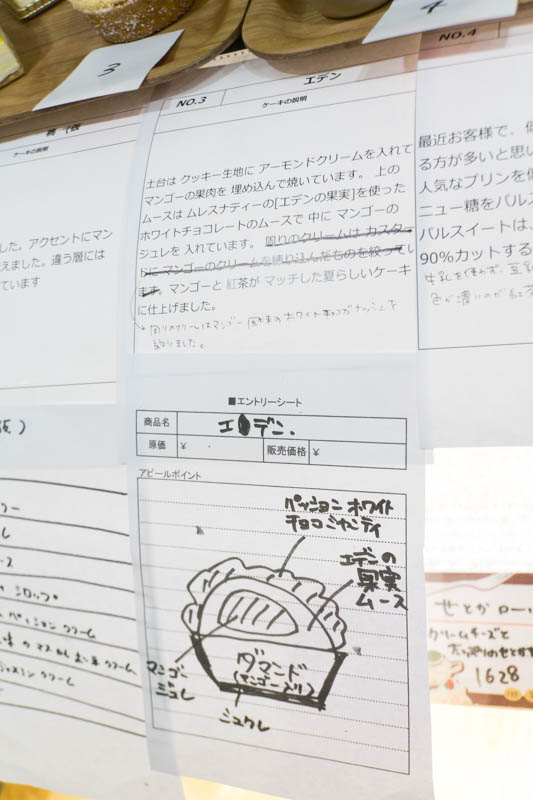 3
4
NO.3 エデン
ケーキの説明
土台は クッキー生地に アーモンドクリームを入れて
マンゴーの果肉を 埋め込んで焼いています。 上の
ムースは ムレスナティーの[エデンの果実]を使った
ホワイトチョコレートのムースで 中に マンゴーの
ジュレを 入れています。 周りのクリームは カスター
ドに マンゴーのクリームを練り込んだものを絞ってい
ます。マンゴーと 紅茶が マッチした夏らしいケーキ
に仕上げました。
周りのクリームはマンゴー風味のホワイトチョコガナッシュを
絞りました。
ケーキの説明
した。アクセントにマン
えました。違う層には
ています
NO.4
最近お客様で、低
る方が多いと思い
人気なプリンを低
ニュー糖をパルス
パルスイートは、
90%カットする
■エントリーシート
商品名 エデン.
原価 ¥ 販売価格 ¥
アピールポイント
パッション ホワイト
チョコシャンティ
エデンの
果実
ムース
マンゴー
ジュレ
ダマンド
(マンゴー入り)
シュクレ
シロップ
せとかロール
クリームチーズと
1628